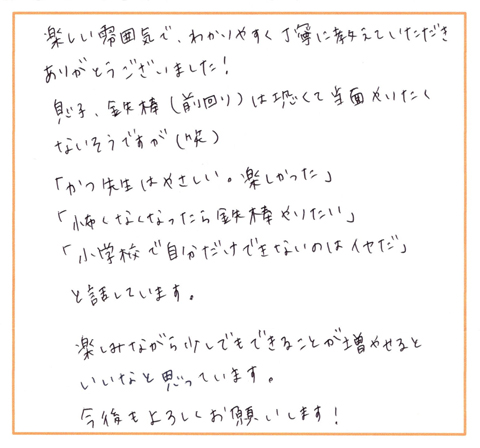 楽しい雰囲気で、わかりやすく丁寧に教えていただき
ありがとうございました！
息子、鉄棒（前回り）は恐くて当面やりたく
ないそうですが（笑）
「かつ先生はやさしい。楽しかった」
「怖くなくなったら鉄棒やりたい」
「小学校で自分だけできないのはイヤだ」
と話しています。
楽しみながら少しでもできることが増やせると
いいなと思っています。
今後もよろしくお願いします！